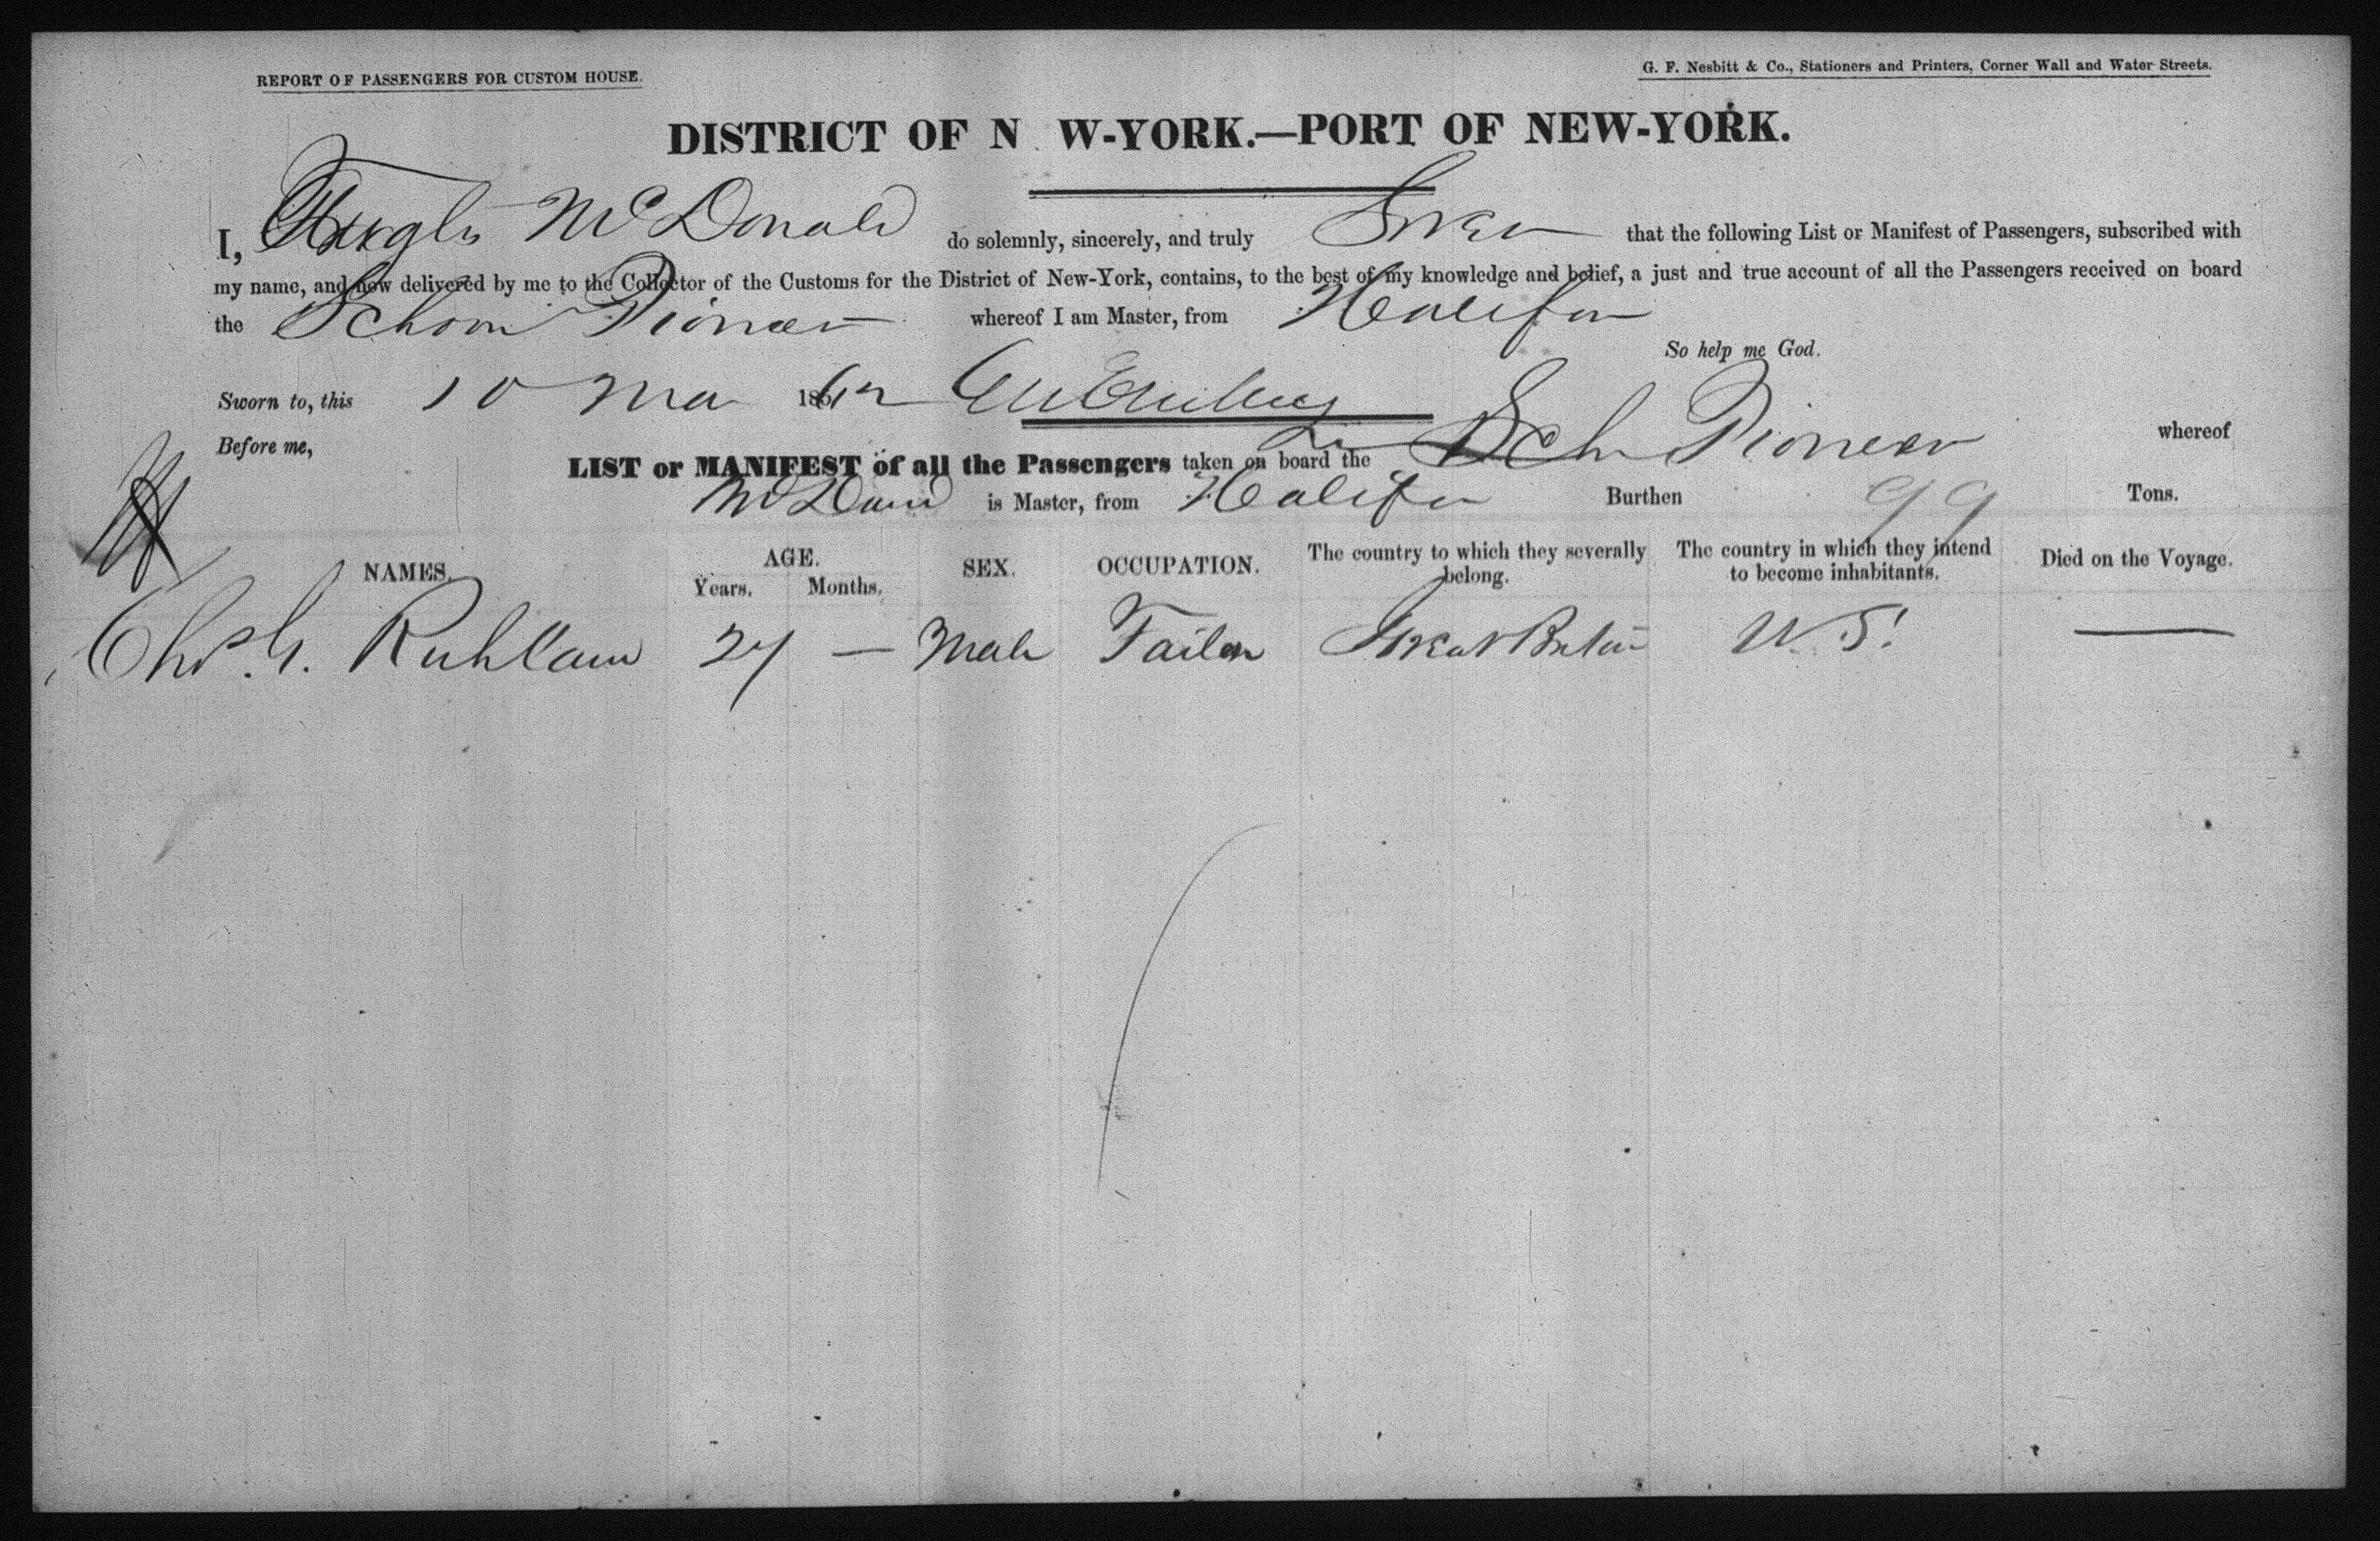 REPORT OF PASSENGERS FOR CUSTOM HOUSE.
G. F. Nesbitt & Co., Stationers and Printers, Corner Wall and Water Streets.
DISTRICT OF N W-YORK.—PORT OF NEW-YORK.
I, McDonald do solemnly, sincerely, and truly Swear that the following List or Manifest of Passengers, subscribed with
my name, and now delivered by me to the Collector of the Customs for the District of New-York, contains, to the best of my knowledge and belief, a just and true account of all the Passengers received on board
the Schoon Pioneer whereof I am Master, from Halifax
So help me God.
Sworn to, this 10 Ma 1862
Before me,
LIST or MANIFEST of all the Passengers taken on board the Sch Pioneer whereof
is Master, from Halifax Burthen 99 Tons.
NAMES. AGE. SEX. OCCUPATION. The country to which they severally belong. The country in which they intend to become inhabitants. Died on the Voyage.
Years. Months.
Chs. G. Ruhland 27 — Male Tailor Great Britain U.S. —